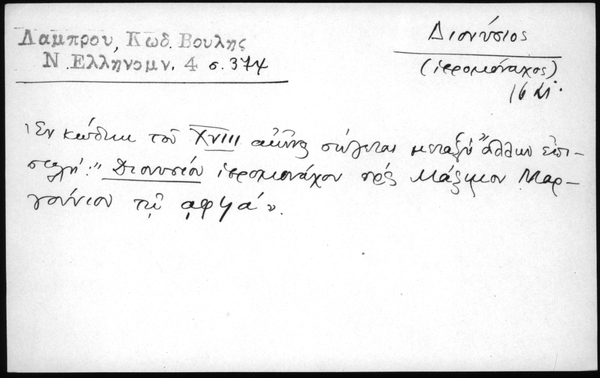 Λαμπρου, Κωδ. Βουλης
Ν. Ελληνομν. 4 σ. 374
Διονύσιος
(ἱερομόναχος)
16 αἰ.
Ἐν κώδικι τοῦ XVIII αἰῶνος σώζεται μεταξὺ ἄλλων ἐπι-
στολή: "Διονυσίου ἱερομονάχου πρὸς Μάξιμον Μαρ-
γούνιον τῷ αφϟά".